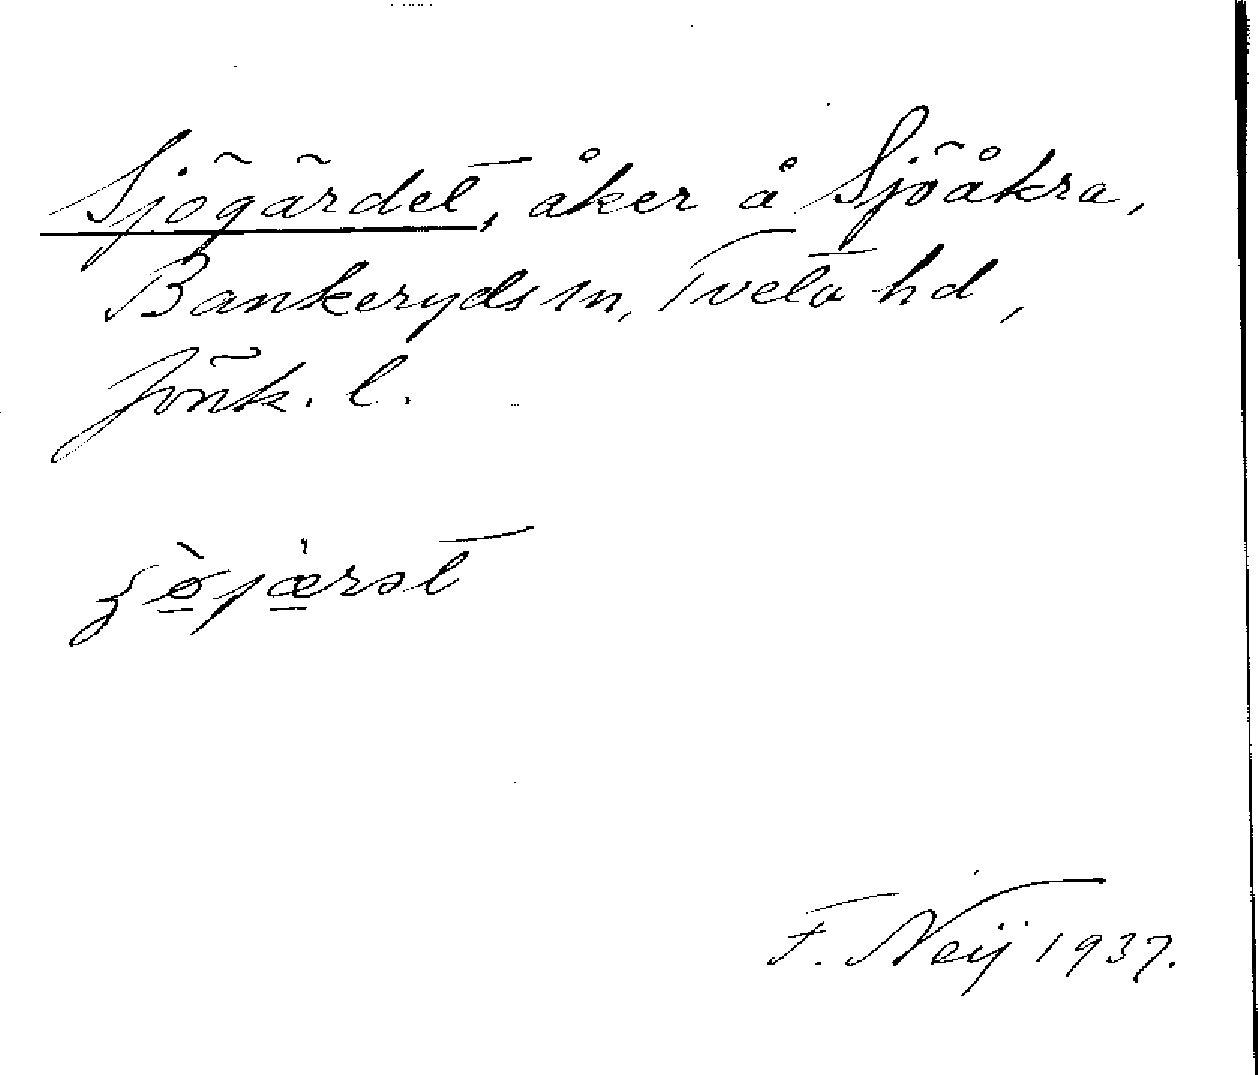 Sjögärdet, åker å Sjöåkra,
Bankeryds sn, Tveta hd,
Jönk. l.
F. Neij 1937.